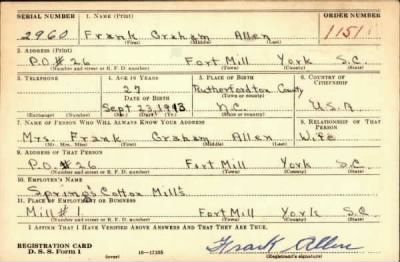 SERIAL NUMBER 1. NAME (Print) ORDER NUMBER
2960 Frank Graham Allen 1151
(First) (Middle) (Last)
2. ADDRESS (Print)
P.O. # 26 Fort Mill York S.C.
(Number and street or R. F. D. number) (Town) (County) (State)
3. TELEPHONE 4. AGE IN YEARS 5. PLACE OF BIRTH 6. COUNTRY OF CITIZENSHIP
27 Rutherfordton County
DATE OF BIRTH (Town or county)
Sept. 23 1913 N.C. U.S.A
(Exchange) (Number) (Mo.) (Day) (Yr.) (State or country)
7. NAME OF PERSON WHO WILL ALWAYS KNOW YOUR ADDRESS 8. RELATIONSHIP OF THAT PERSON
Mrs. Frank Graham Allen Wife
(Mr., Mrs., Miss) (First) (Middle) (Last)
9. ADDRESS OF THAT PERSON
P.O. # 26 Fort Mill York S.C.
(Number and street or R. F. D. number) (Town) (County) (State)
10. EMPLOYER'S NAME
Springs Cotton Mills
11. PLACE OF EMPLOYMENT OR BUSINESS
Mill # Fort Mill York S.C
(Number and street or R. F. D. number) (Town) (County) (State)
I AFFIRM THAT I HAVE VERIFIED ABOVE ANSWERS AND THAT THEY ARE TRUE.
REGISTRATION CARD
D. S. S. Form 1 (over) 16—17105 Frank Allen
(Registrant's signature)